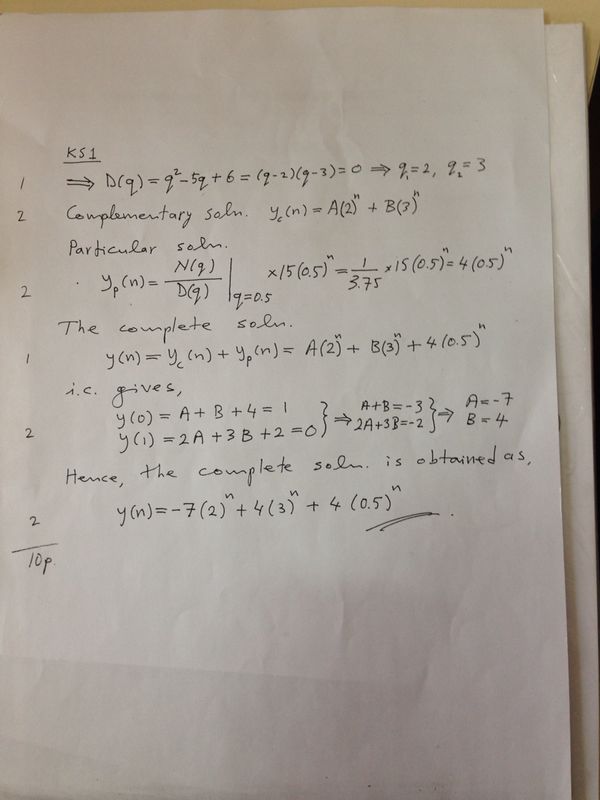 KS1
1 ⟹ D(q) = q²-5q+6 = (q-2)(q-3)=0 ⟹ q₁=2, q₂=3
2 Complementary soln. y_c(n) = A(2)ⁿ + B(3)ⁿ
Particular soln.
2 . y_p(n) = N(q)/D(q) |_{q=0.5} ×15(0.5)ⁿ = 1/3.75 ×15(0.5)ⁿ = 4(0.5)ⁿ
The complete soln.
1 y(n) = y_c(n) + y_p(n) = A(2)ⁿ + B(3)ⁿ + 4(0.5)ⁿ
i.c. gives,
y(0) = A + B + 4 = 1 } ⟹ A+B=-3 } ⟹ A=-7
2 y(1) = 2A + 3B + 2 = 0 } ⟹ 2A+3B=-2 } ⟹ B=4
Hence, the complete soln. is obtained as,
2 y(n) = -7(2)ⁿ + 4(3)ⁿ + 4(0.5)ⁿ .
10p.